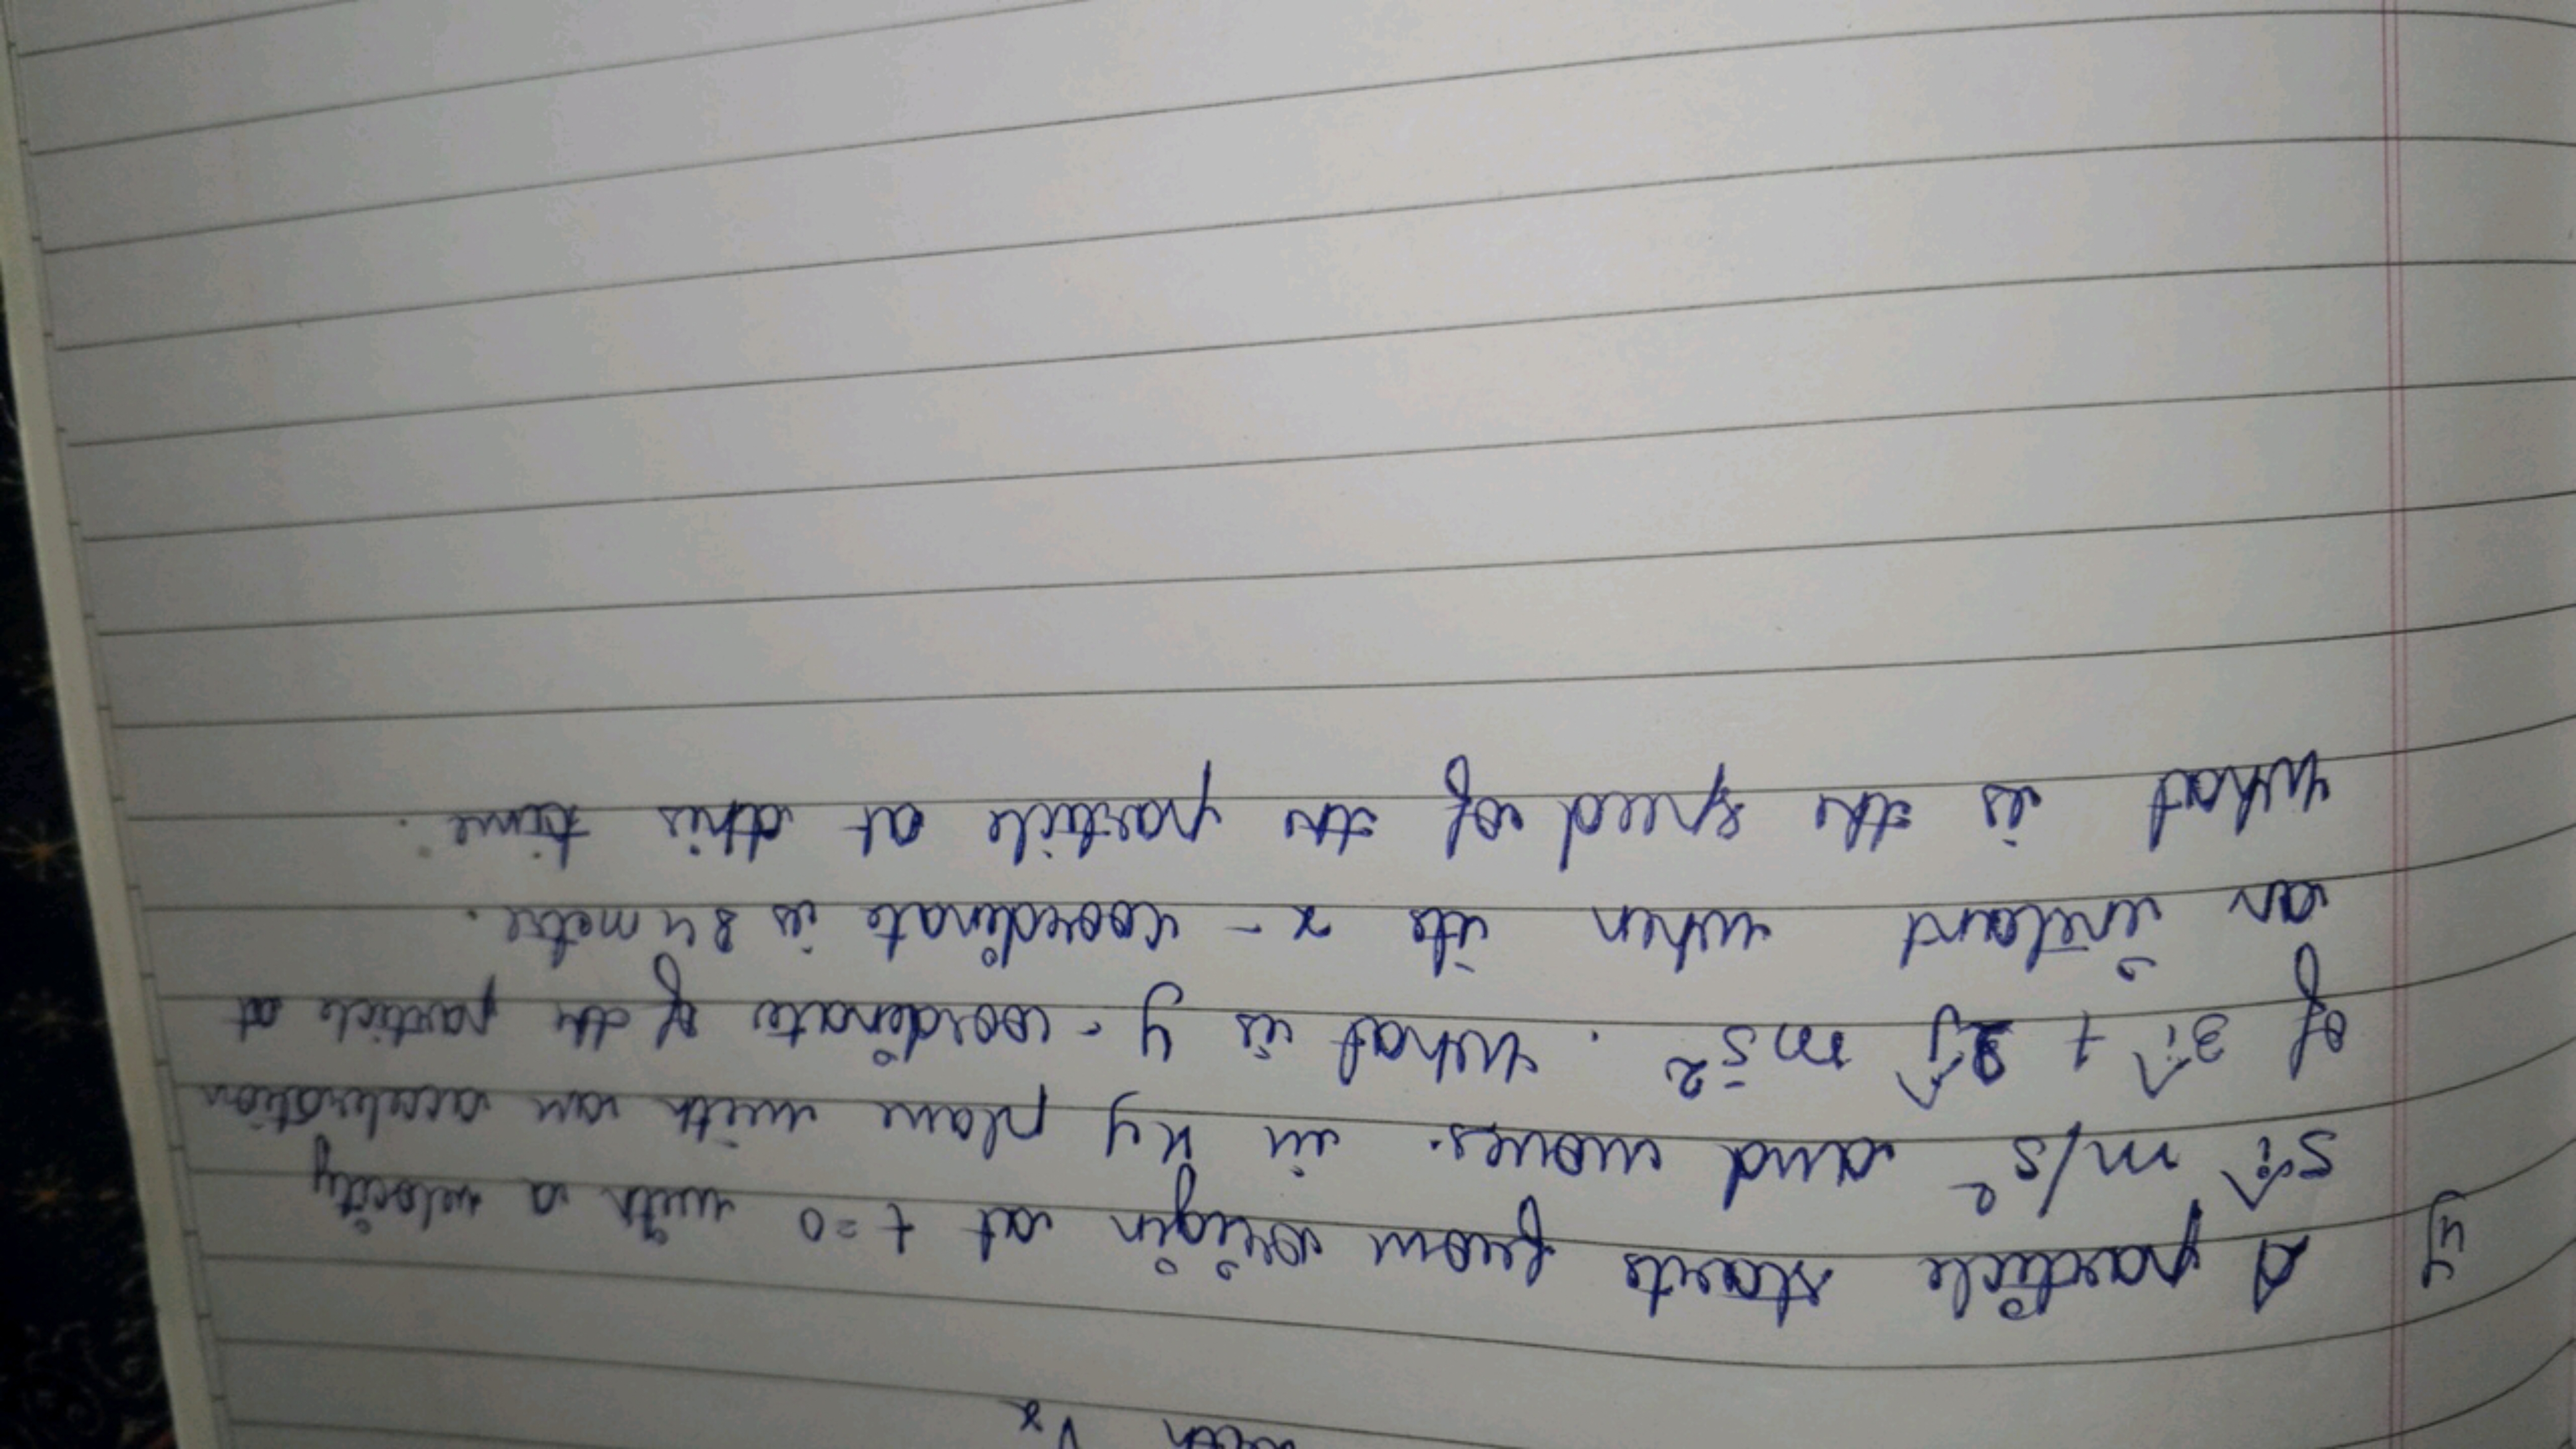 with Vx
4) A particle starts from origin at t=0 with a velocity
5î m/s² and moves. in xy plane with an acceleration
of 3î + 2ĵ ms⁻². What is y-coordinate of the particle at
an instant when its x-coordinate is 84 metre.
What is the speed of the particle at this time.